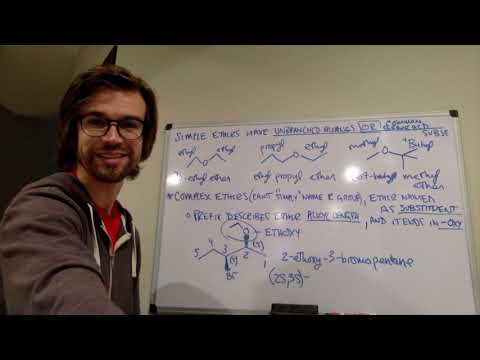 SIMPLE ETHERS HAVE UNBRANCHED ALKYLS (OR) COMMON BRANCHED SUBS
ethyl ethyl propyl ethyl methyl tButyl
ethyl ether ethyl propyl ether methyl
ether
* COMPLEX ETHERS (CAN'T "SIMPLY" NAME R GROUP), ETHER NAMED
AS SUBSTITUENT
PREFIX DESCRIBES ETHER ALKYL LENGTH, AND IT ENDS IN -OXY
ETHOXY
O
5 4 3 2 1
(S) (S)
Br
2-ethoxy-3-bromopentane
(2S,3S)-